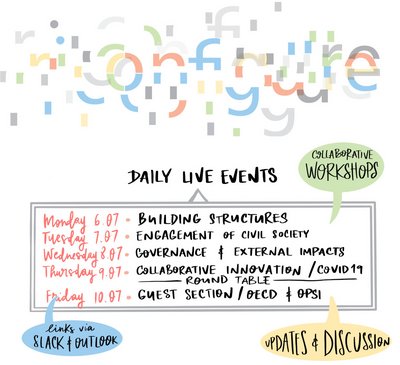 riconfigure
DAILY LIVE EVENTS
COLLABORATIVE
WORKSHOPS
Monday 6.07 - BUILDING STRUCTURES
Tuesday 7.07 - ENGAGEMENT OF CIVIL SOCIETY
Wednesday 8.07 - GOVERNANCE & EXTERNAL IMPACTS
Thursday 9.07 - COLLABORATIVE INNOVATION / COVID19
ROUND TABLE
Friday 10.07 - GUEST SECTION / OECD & OPSI
links via
SLACK & OUTLOOK
UPDATES & DISCUSSION